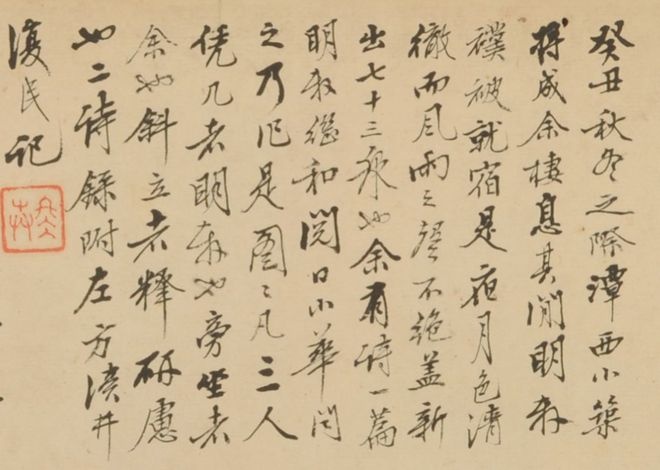 癸丑秋冬之際潭西小築
將成余棲息其間明叔
襆被就宿是夜月色清
徹而風雨之聲不絶盖新
出七十三泉也余有詩一篇
明叔繼和閱日小華聞
之乃作是圖〻凡三人
凭几者明叔也旁坐者
余也斜立者釋硏慮
也二詩録附左方漬井
復民記